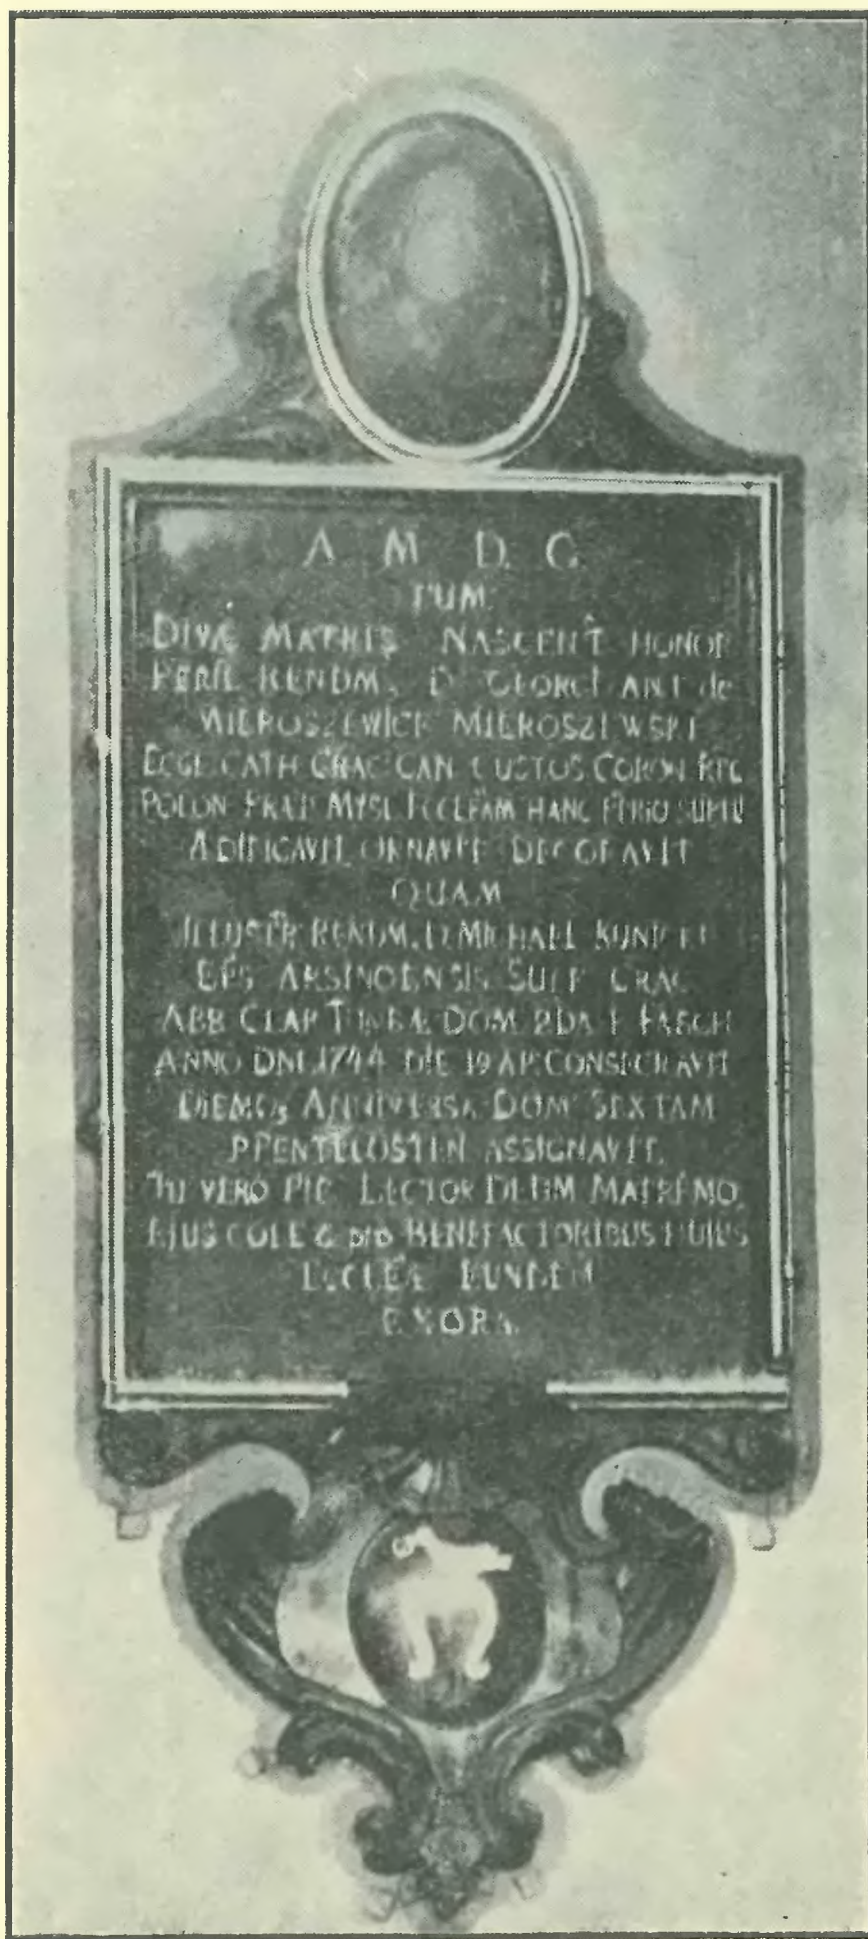 A M D. G
TUM
DIVÆ MATRIS NASCENT HONOR
PERIL RENDM. D. GEORGI ANT de
MIEROSZEWICE MIEROSZEWSKI
ECCL CATH CRAC CAN CUSTOS CORON REG
POLON PRÆP MYSL ECCLEAM HANC
ADIFICAVIT ORNAVIT DECORAVIT
QUAM
ILLUSTR RENDM. D. MICHAEL KUNICKI
EPS ARSINOENSIS SUFF CRAC
ABB CLAR TUMBÆ DOM 2DA P PASCH
ANNO DNI 1744 DIE 19 AP. CONSECRAVIT
DIEMQ ANNIVERSA DOM SEXTAM
P PENTECOSTEN ASSIGNAVIT.
TU VERO PIE LECTOR DEUM MATREMQ
EJUS COLE & pro BENEFACTORIBUS HUIUS
ECCLÆ EUNDEM
EXORA.